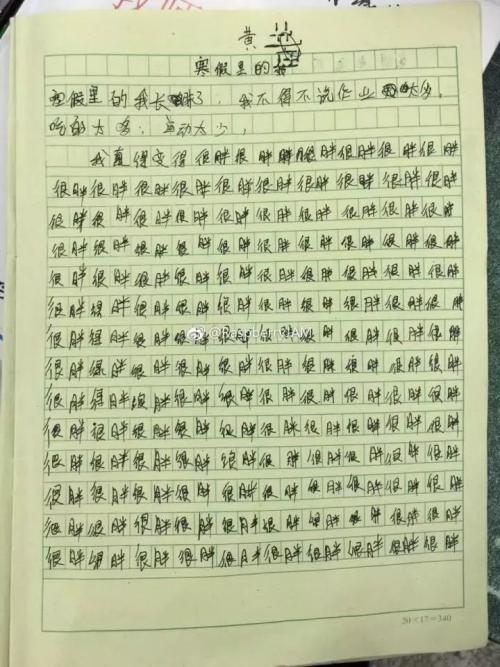 黄
寒假里的
寒假里的我长胖了，我不得不说作业太多，
吃的太多，运动太少，
我真得变得很胖很胖胖很胖很胖很胖很胖
很胖很胖很胖很胖很胖很胖很胖很胖很胖很胖
很胖很胖很胖很胖很胖很胖很胖很胖很胖很胖
很胖很胖很胖很胖很胖很胖很胖很胖很胖很胖
很胖很胖很胖很胖很胖很胖很胖很胖很胖很胖
很胖很胖很胖很胖很胖很胖很胖很胖很胖很胖
很胖很胖很胖很胖很胖很胖很胖很胖很胖很胖
很胖很胖很胖很胖很胖很胖很胖很胖很胖很胖
很胖很胖很胖很胖很胖很胖很胖很胖很胖很胖
很胖很胖很胖很胖很胖很胖很胖很胖很胖很胖
很胖很胖很胖很胖很胖很胖很胖很胖很胖很胖
很胖很胖很胖很胖很胖很胖很胖很胖很胖很胖
很胖很胖很胖很胖很胖很胖很胖很胖很胖很胖
很胖很胖很胖很胖很胖很胖很胖很胖很胖很胖
@RaspberryJAM
20×17=340